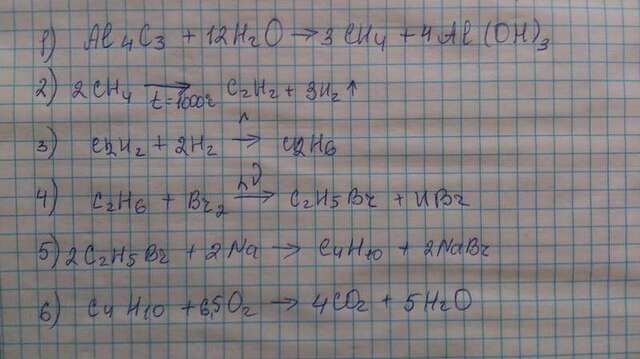 1) Al4C3 + 12H2O → 3CH4 + 4Al(OH)3
2) 2CH4 → t=1000 C2H2 + 3H2↑
3) C2H2 + 2H2 → C2H6
4) C2H6 + Br2 hν→ C2H5Br + HBr
5) 2C2H5Br + 2Na → C4H10 + 2NaBr
6) C4H10 + 6,5O2 → 4CO2 + 5H2O